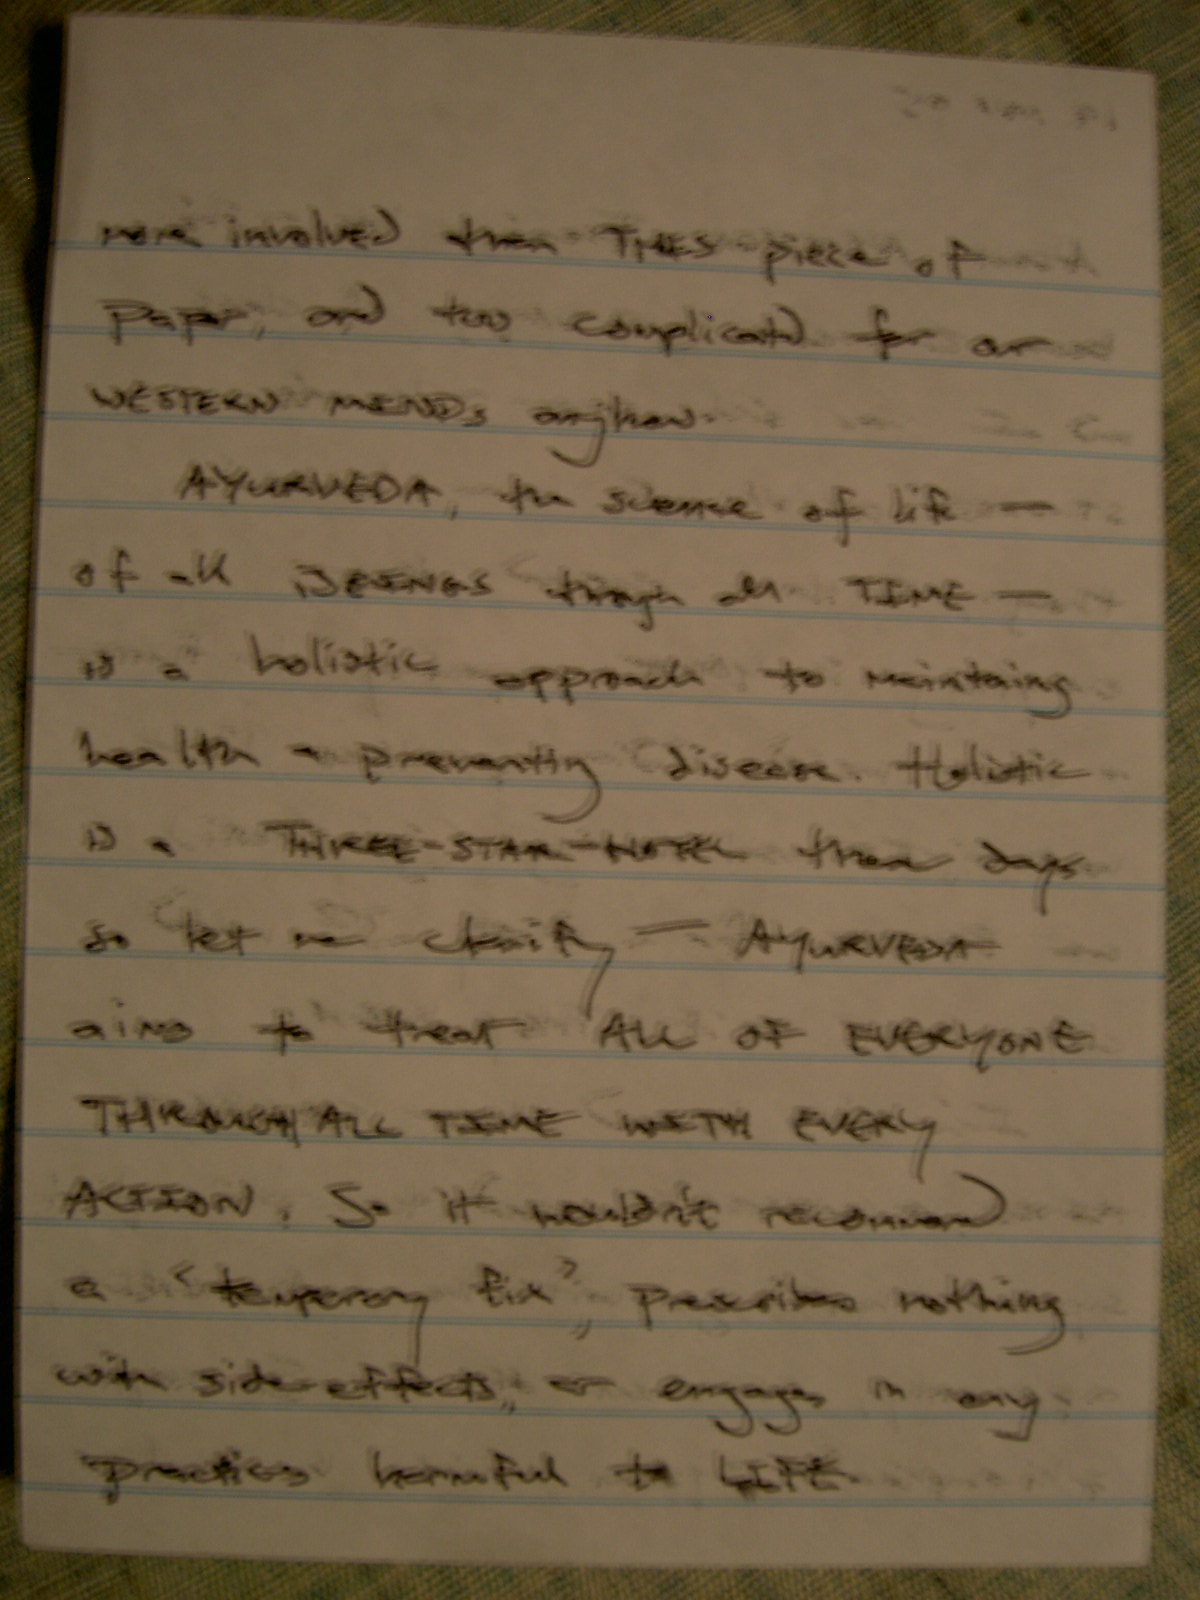 more involved than THIS piece of
paper, and too complicated for our
WESTERN MINDS anyhow.
AYURVEDA, the science of life —
of all BEINGS through all TIME —
is a holistic approach to maintaing
health + preventing disease. Holistic
is a THREE-STAR-HOTEL these days
so let me clarify — AYURVEDA
aims to treat ALL OF EVERYONE
THROUGH ALL TIME WITH EVERY
ACTION. So it wouldn't recommend
a "temporary fix", prescribes nothing
with side-effects, or engages in any
practices harmful to LIFE.